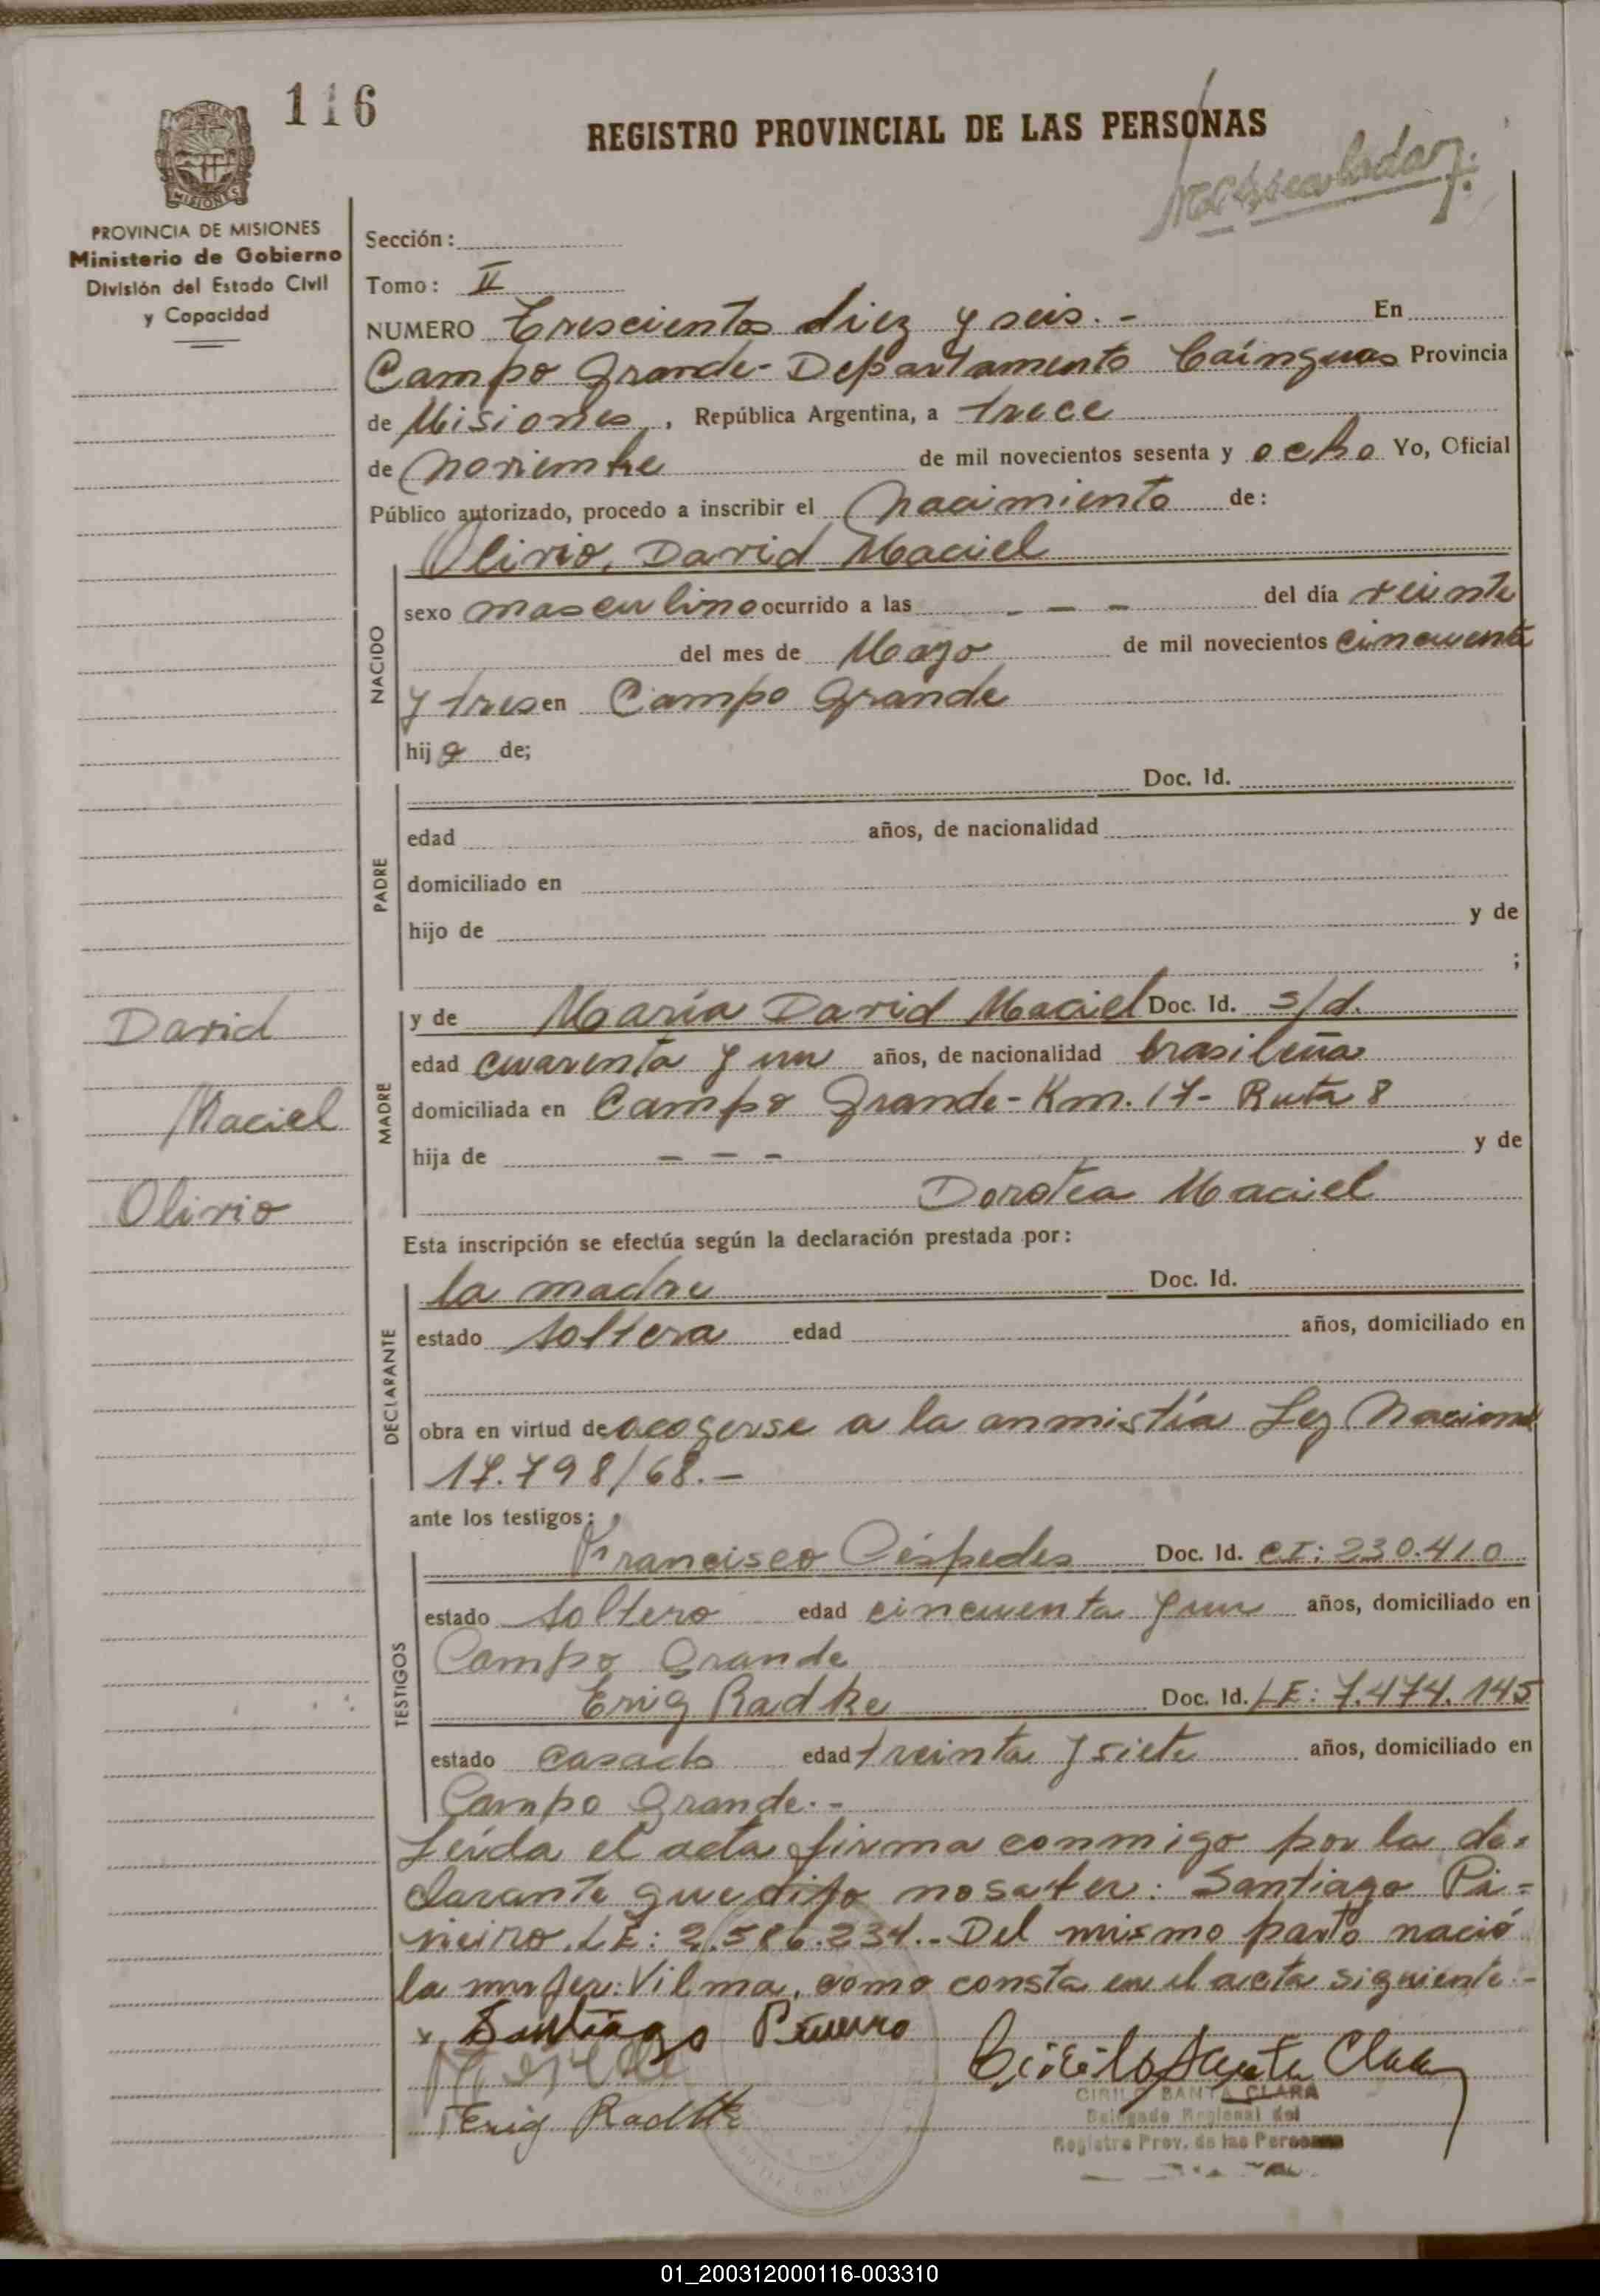 116
REGISTRO PROVINCIAL DE LAS PERSONAS
MISIONES
PROVINCIA DE MISIONES
Ministerio de Gobierno
División del Estado Civil
y Capacidad
Sección:
Tomo: II
NUMERO Trescientos diez y seis.- En
Campo Grande- Departamento Caínguas Provincia
de Misiones, República Argentina, a trece
de noviembre de mil novecientos sesenta y ocho Yo, Oficial
Público autorizado, procedo a inscribir el nacimiento de:
Olivio, David Maciel
NACIDO
sexo masculino ocurrido a las - - - del día veinte
del mes de Mayo de mil novecientos cincuenta
y tres en Campo Grande
hijo de;
PADRE
Doc. Id.
edad años, de nacionalidad
domiciliado en
hijo de y de
;
MADRE
y de María David Maciel Doc. Id. s/d.
edad cuarenta y un años, de nacionalidad brasileña
domiciliada en Campo Grande- Km. 17- Ruta 8
hija de - - - y de
Dorotea Maciel
David
Maciel
Olivio
Esta inscripción se efectúa según la declaración prestada por:
DECLARANTE
la madre Doc. Id.
estado soltera edad años, domiciliado en
obra en virtud de acogerse a la anmistía Ley Nacional
17.798/68.-
ante los testigos:
TESTIGOS
Francisco Céspedes Doc. Id. CI: 230.410
estado soltero edad cincuenta y un años, domiciliado en
Campo Grande
Erig Radke Doc. Id. LE: 7.474.145
estado casado edad treinta y siete años, domiciliado en
Campo Grande.-
Leída el acta firma conmigo por la de=
clarante que dijo no saber: Santiago Pi=
ñeiro. LE: 2.586.234.- Del mismo parto nació
la mujer: Vilma, como consta en el acta siguiente.-
Santiago Piñeiro
Cirilo Santa Clara
CIRILO SANTA CLARA
Delegado Regional del
Registro Prov. de las Personas
Erig Radtke
01_200312000116-003310